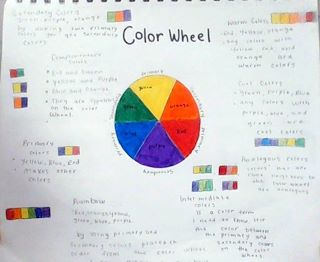 Secondary Colors
Green, purple, orange
by mixing two primary
colors you get secondary
colors
Color Wheel
Warm Colors
Red, Yellow, orange
any colors with
yellow, red, and
orange are
warm colors
Complementary
colors
Red and Green
Yellow and Purple
Blue and Orange
They are opposites
on the color
Wheel.
Primary
yellow
orange
green
red
blue
purple
Cool Colors
Green, Purple, Blue
any colors with
purple, blue, and
green are
cool colors
Primary
colors
Yellow, Blue, Red
makes other
colors
Analogous colors
colors that are
next to
the color wheel
are analogous
Rainbow
Red, orange, yellow,
green, blue, purple
by using primary and
secondary colors placed in
order from the color wheel
Intermediate
colors
is a color term
I need to know
color between
the primary and
secondary colors
on the color
wheel.